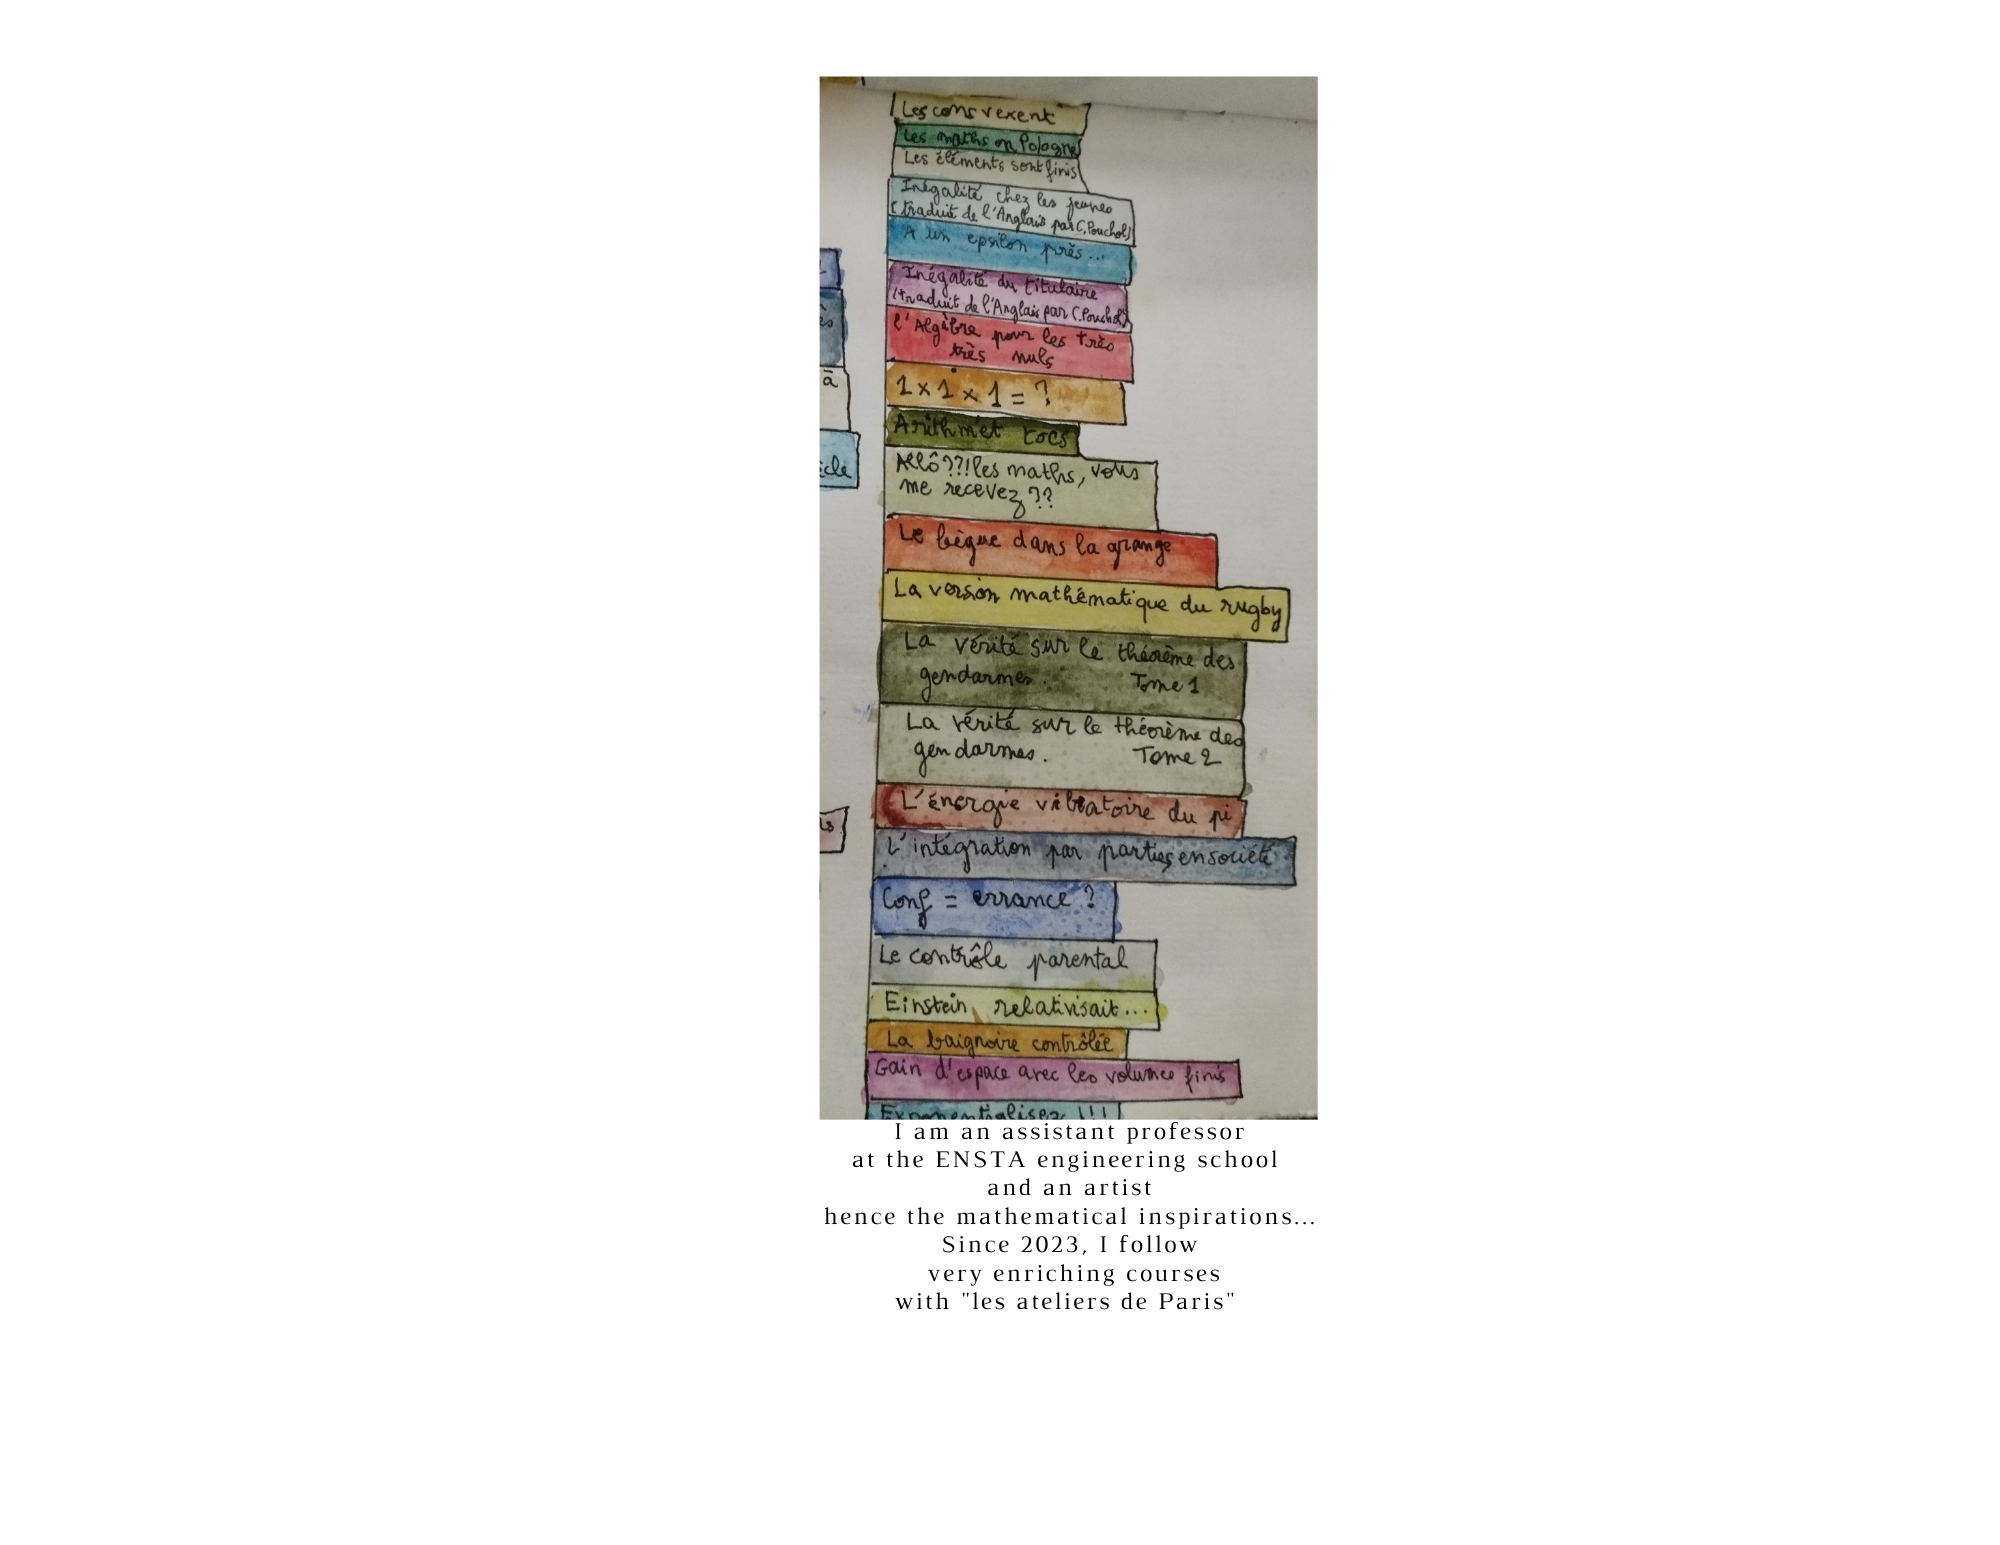 Les cons vexent
Les maths en Pologne
Les éléments sont finis
Inégalité chez les jeunes
(traduit de l'Anglais par C.Pouchol)
A un epsilon près...
Inégalité du titulaire
(traduit de l'Anglais par C.Pouchol)
l'Algèbre pour les très
très nuls
1 x 1 x 1 = ?
Arithm'et tocs
Allô??!les maths, vous
me recevez ??
Le bègue dans la grange
La version mathématique du rugby
La vérité sur le théorème des
gendarmes. Tome 1
La vérité sur le théorème des
gendarmes. Tome 2
L'énergie vibratoire du pi
L'intégration par parties en société
Conf = errance ?
Le contrôle parental
Einstein relativisait...
La baignoire contrôlée
Gain d'espace avec les volumes finis
Exponentialisez !!!
ā
icle
I am an assistant professor
at the ENSTA engineering school
and an artist
hence the mathematical inspirations...
Since 2023, I follow
very enriching courses
with "les ateliers de Paris"